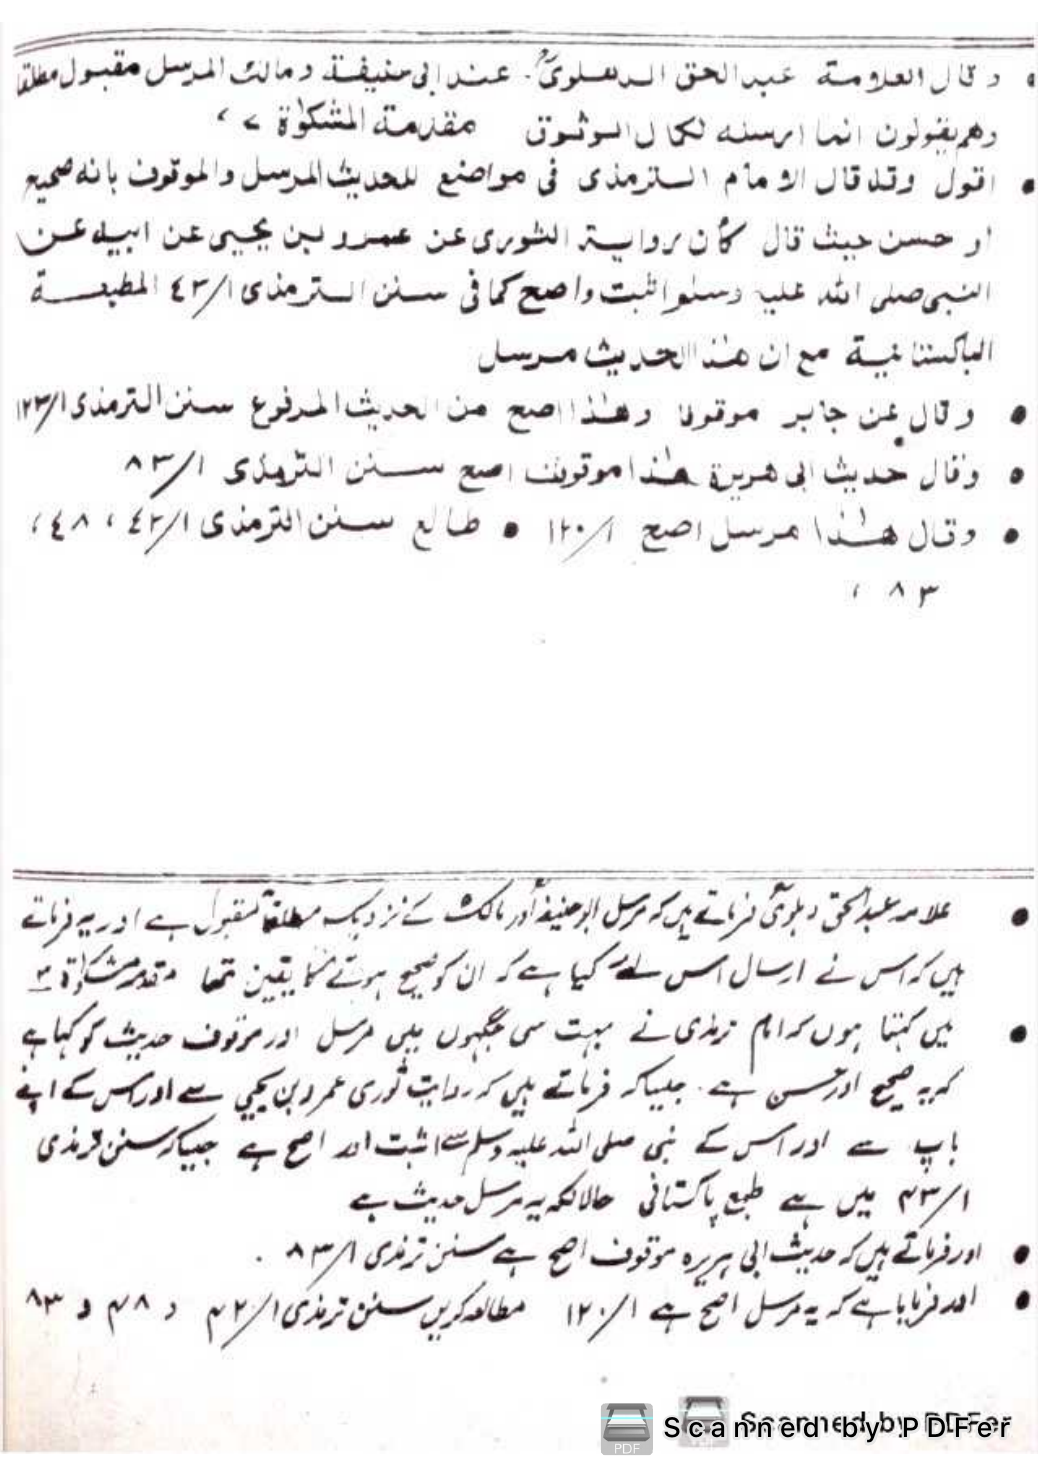 • وقال العلامة عبد الحق الدهلویؒ. عند ابی حنیفة ومالک المرسل مقبول مطلقا
وهم یقولون انما ارسله لکمال الوثوق مقدمة المشکوٰة
• اقول وقد قال الامام الترمذی فی مواضع للحدیث المرسل والموقوف بانه صحیح
او حسن حیث قال کأن روایة الثوری عن عمرو بن یحیی عن ابیه عن
النبی صلی الله علیه وسلم اثبت واصح کما فی سنن الترمذی ۱/۴۳ المطبعة
الباکستانیة مع ان هذا الحدیث مرسل
• وقال عن جابر موقوفا وهذا اصح من الحدیث المرفوع سنن الترمذی ۱/۱۲۳
• وقال حدیث ابی هریرة هذا موقوف اصح سنن الترمذی ۱/۸۳
• وقال هذا مرسل اصح ۱/۱۲۰ • طالع سنن الترمذی ۱/۴۲، ۴۸،
۸۳،
• علامہ عبد الحق دہلویؒ فرماتے ہیں کہ مرسل ابو حنیفہؒ اور مالک کے نزدیک مطلقاً مقبول ہے اور یہ فرماتے
ہیں کہ اس نے ارسال اس لئے کیا ہے کہ ان کو صحیح ہونے کا یقین تھا مقدمہ مشکوٰة
• میں کہتا ہوں کہ امام ترمذی نے بہت سی جگہوں میں مرسل اور موقوف حدیث کو کہا ہے
کہ یہ صحیح اور حسن ہے. جیسا کہ فرماتے ہیں کہ روایت ثوری عمرو بن یحیی سے اور اس کے اپنے
باپ سے اور اس کے نبی صلی اللہ علیہ وسلم سے اثبت اور اصح ہے جیسا کہ سنن ترمذی
۱/۴۳ میں ہے طبع پاکستانی حالانکہ یہ مرسل حدیث ہے
• اور فرماتے ہیں کہ حدیث ابی ہریرہ موقوف اصح ہے سنن ترمذی ۱/۸۳.
• اور فرمایا ہے کہ یہ مرسل اصح ہے ۱/۱۲۰ مطالعہ کریں سنن ترمذی ۱/۴۲ و ۴۸ و ۸۳
Scanned by PDFer